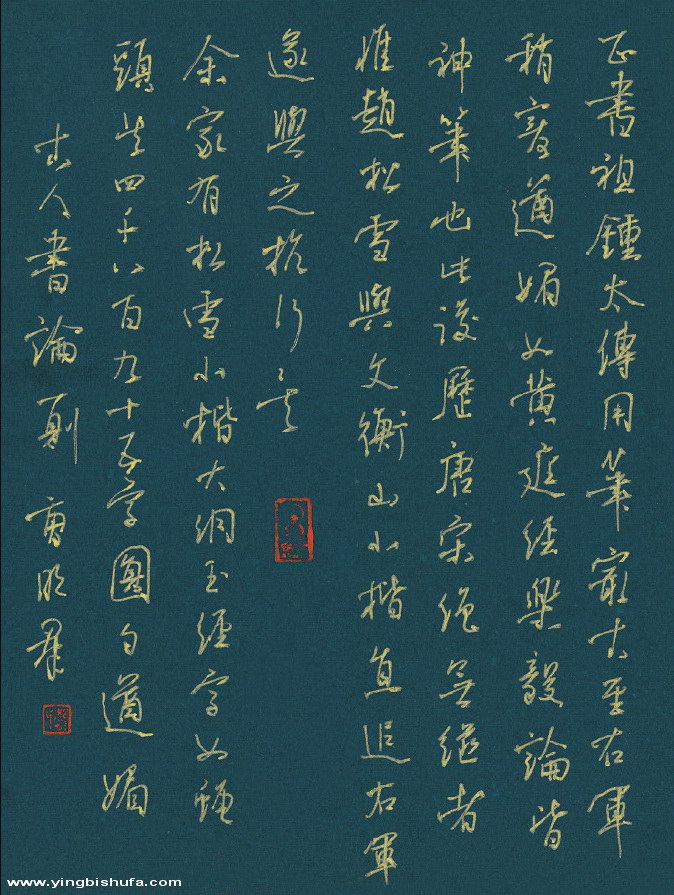 正書祖鍾太傅用筆最古至右軍
稍遒媚如黃庭經樂毅論皆
神筆也此後歷唐宋絕無繼者
惟趙松雪與文衡山小楷直追右軍
遂與之抗行矣
余家有松雪小楷大洞玉經字如蠅
頭共四千八百九十五字圓勻遒媚
古人書論一則 曹
www.yingbishufa.com